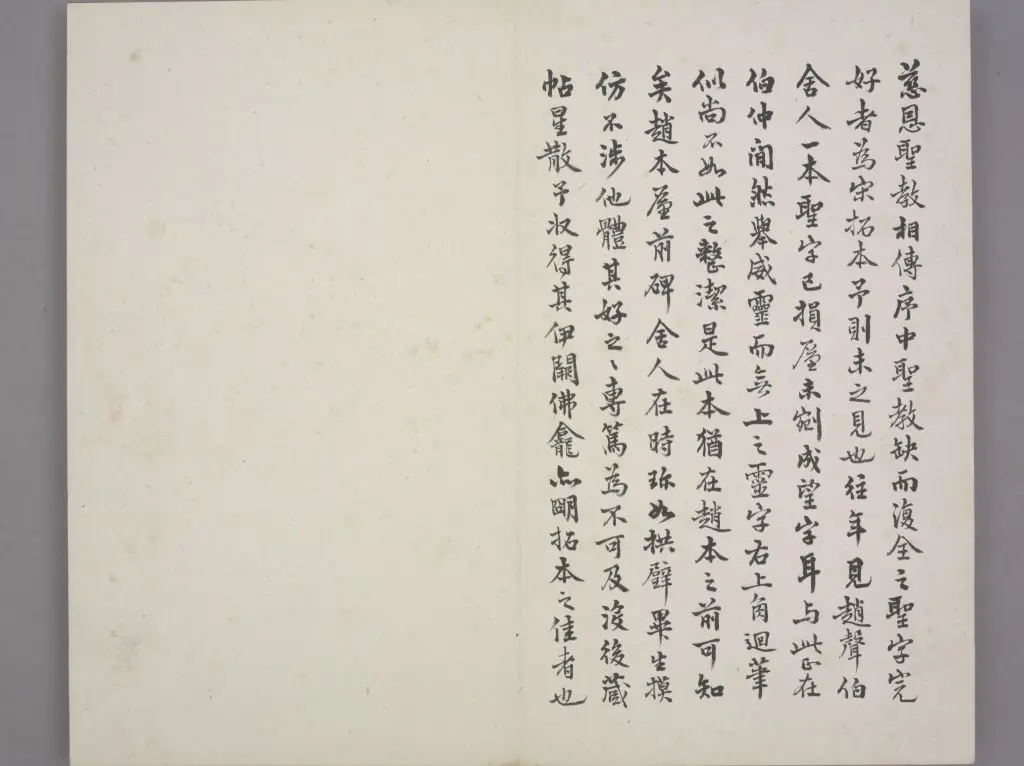 慈恩聖教相傳序中聖教缺而復全之聖字完
好者為宋拓本予則未之見也往年見趙聲伯
舍人一本聖字已損廑未剜成望字耳与此正在
伯仲間然舉威靈而無上之靈字右上角迴筆
似尚不如此之整潔是此本猶在趙本之前可知
矣趙本廑前碑舍人在時珎如拱璧畢生摸
仿不涉他體其好之〻專篤為不可及沒後藏
帖星散予收得其伊闕佛龕亦明拓本之佳者也